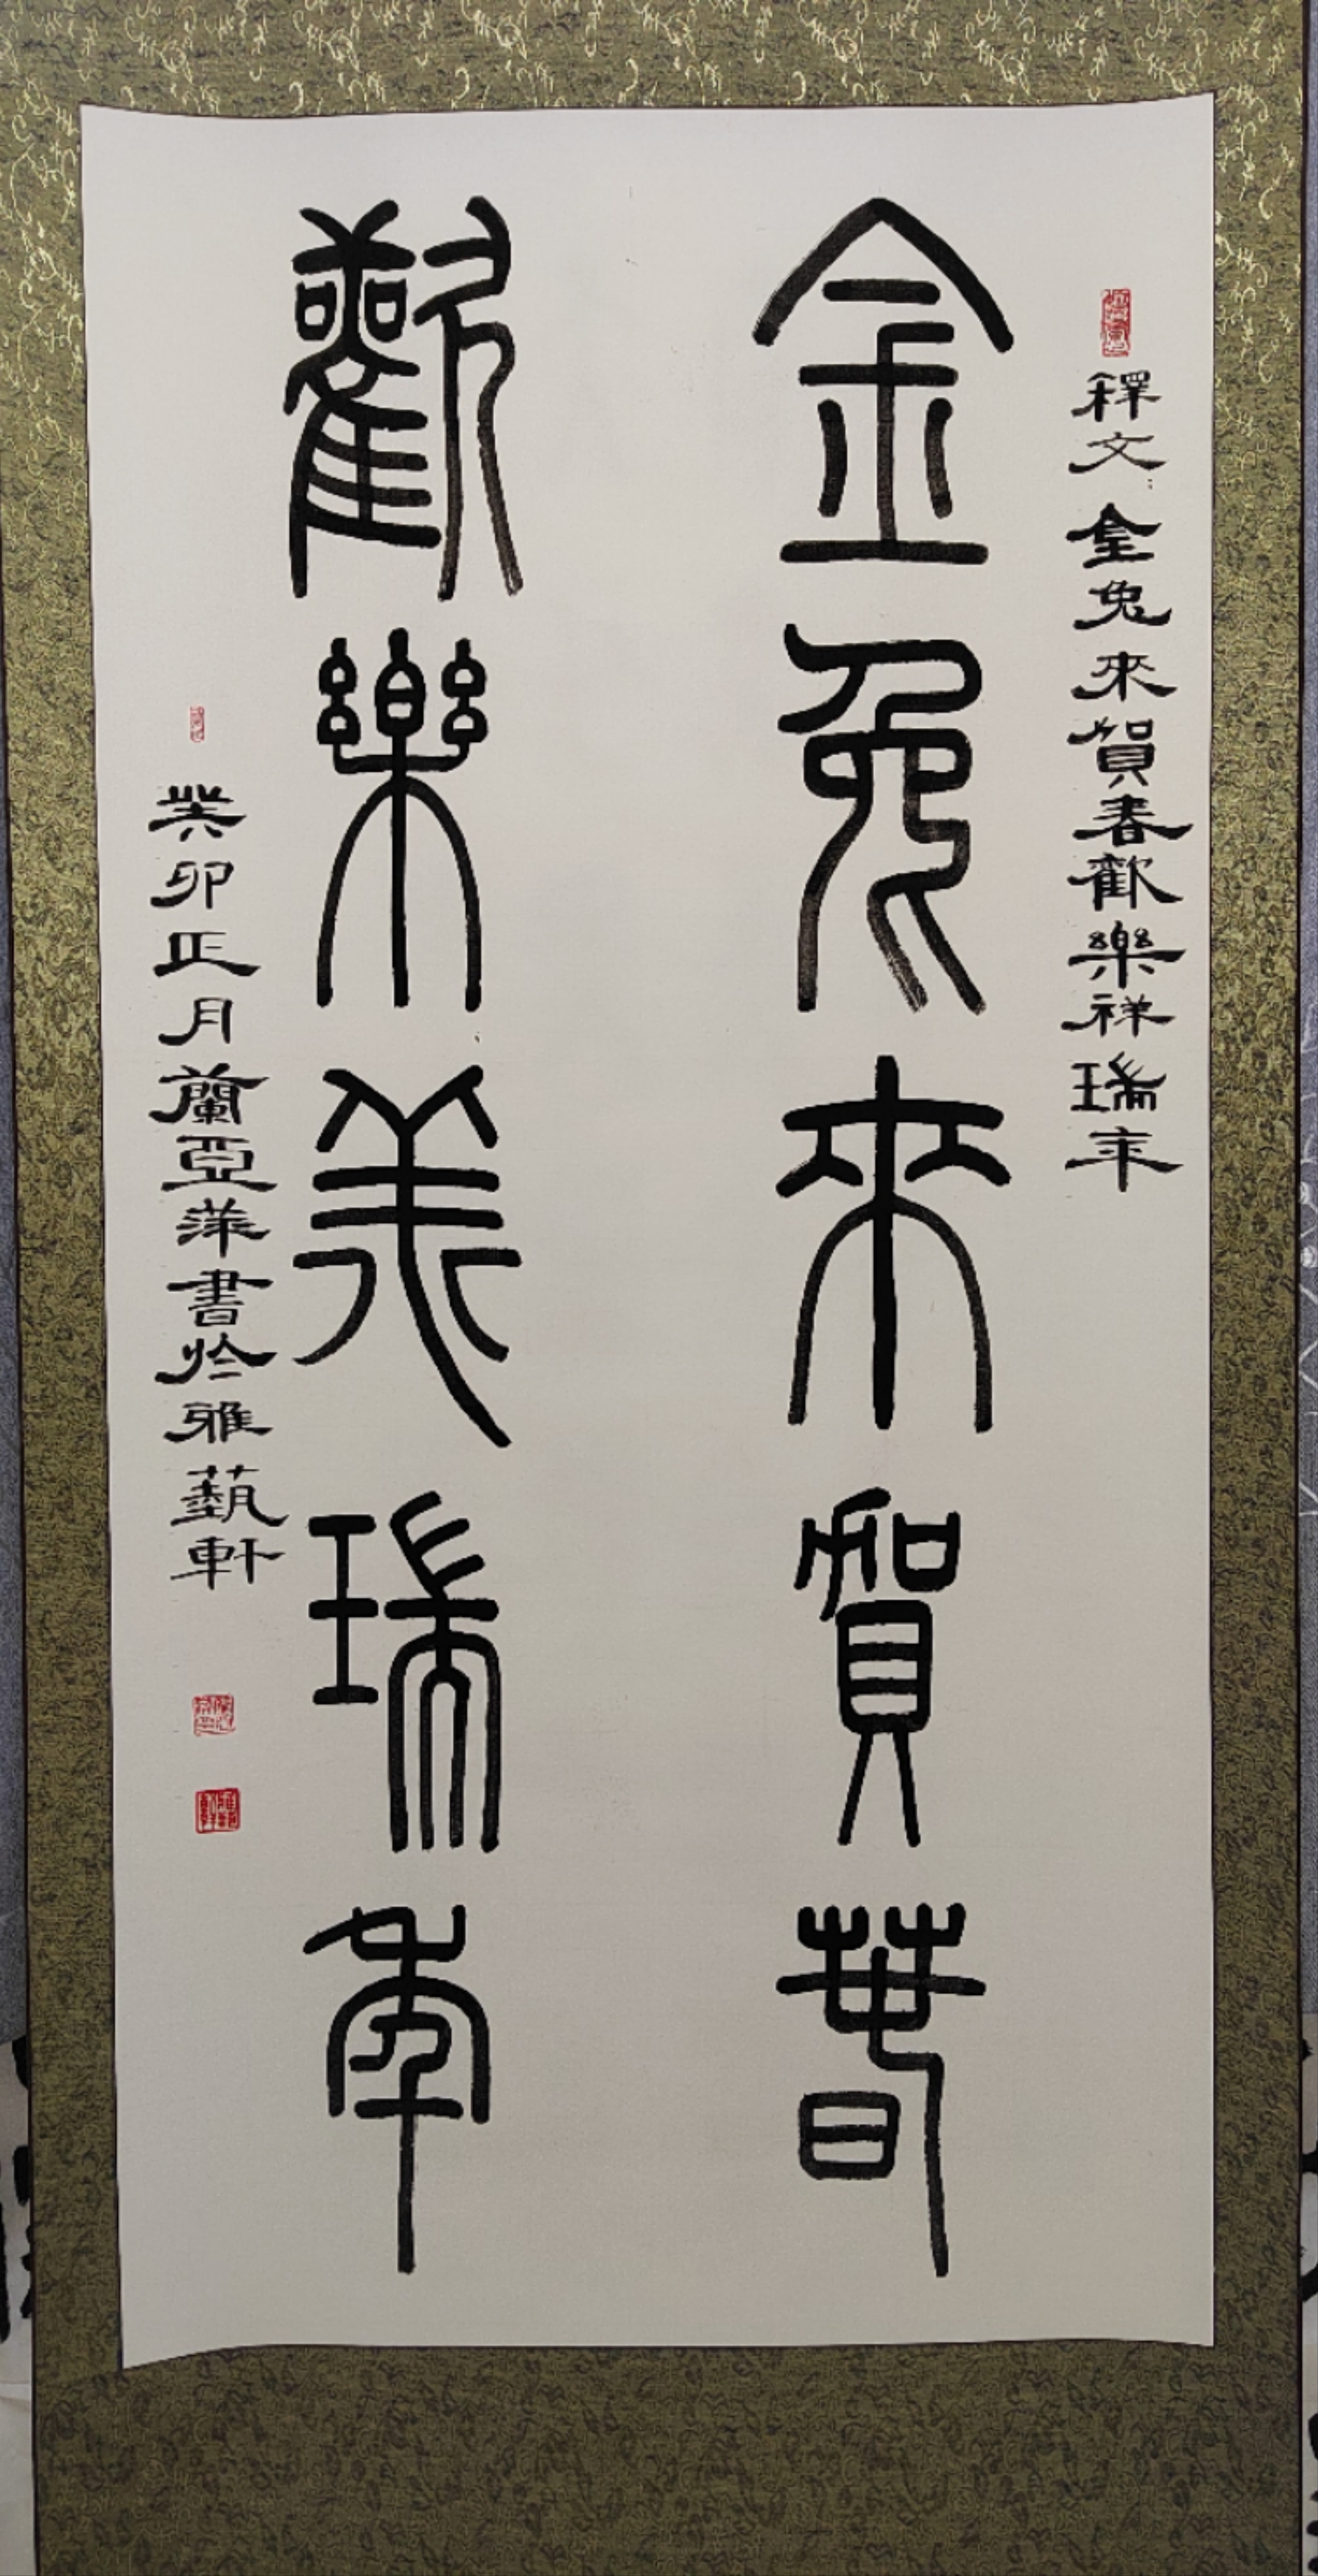 释文:金兔來賀春歡樂祥瑞年
金兔來賀萅
歡樂羊瑞年
癸卯正月蘭亞萍書於雅藝軒